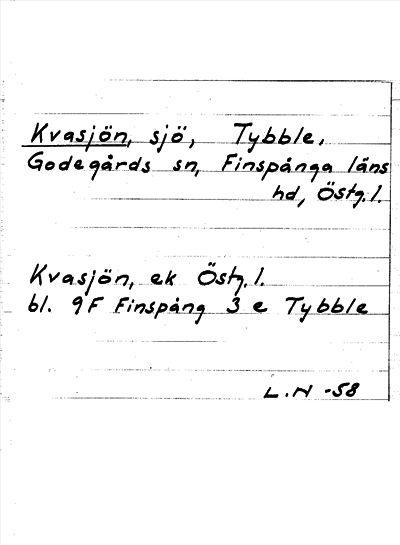 Kvasjön, sjö, Tybble,
Godegårds sn, Finspånga läns
hd, Östg.l.
Kvasjön, ek Östg.l.
bl. 9F Finspång 3 e Tybble
L.N -58